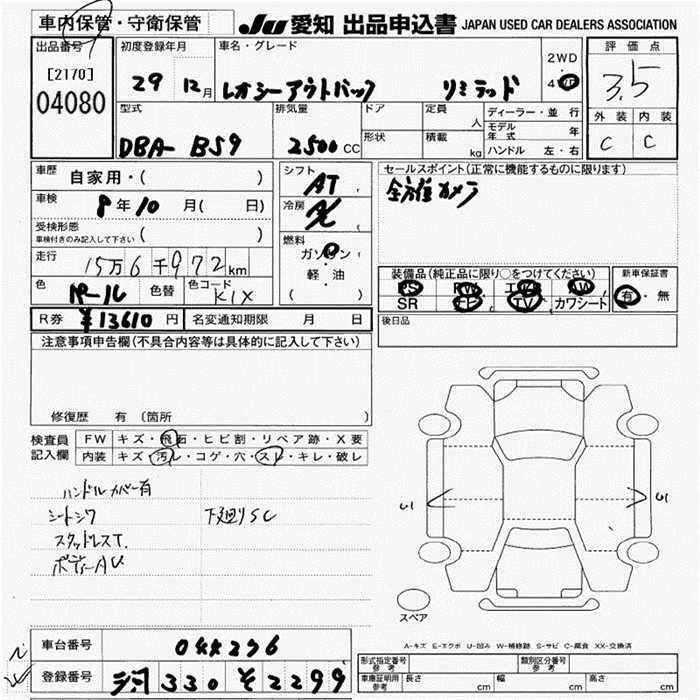 車内保管・守衛保管
JU 愛知 出品申込書 JAPAN USED CAR DEALERS ASSOCIATION
出品番号
[2170]
04080
初度登録年月
29年 12月
車名・グレード
レガシーアウトバック リミテッド
2WD
4WD
評価点
3.5
外装 内装
C C
型式
DBA- BS9
排気量
2500CC
ドア
形状
定員
人
積載
kg
ディーラー・並行
モデル年式 年
ハンドル 左・右
車歴
自家用・( )
車検
8年10月( 日)
受検形態
車検付きのみ記入して下さい ( )
走行
15万6千972km
色
パール
色替
色コード
K1X
R券 ¥13610円
名変通知期限 月 日
シフト
AT
冷房
燃料
ガソリン
軽・油
( )
セールスポイント(正常に機能するものに限ります)
全方位カメラ
装備品(純正品に限り○をつけてください)
PS PW AW
SR TV カワシート
新車保証書
有・無
後日品
注意事項申告欄(不具合内容等は具体的に記入して下さい)
修復歴 有 (箇所 )
検査員記入欄
FW キズ・飛石・ヒビ割・リペア跡・X要
内装 キズ・汚レ・コゲ・穴・スレ・キレ・破レ
ハンドルカバー有
シートシワ 下廻りSC
スタッドレスT.
スペア
A-キズ E-エクボ U-凹み W-補修跡 S-サビ C-腐食 XX-交換済
車台番号 044236
登録番号 330 そ 2299
形式指定番号 参考
類別区分番号 参考
車庫証明用 参考
長さ cm 幅 cm 高さ cm